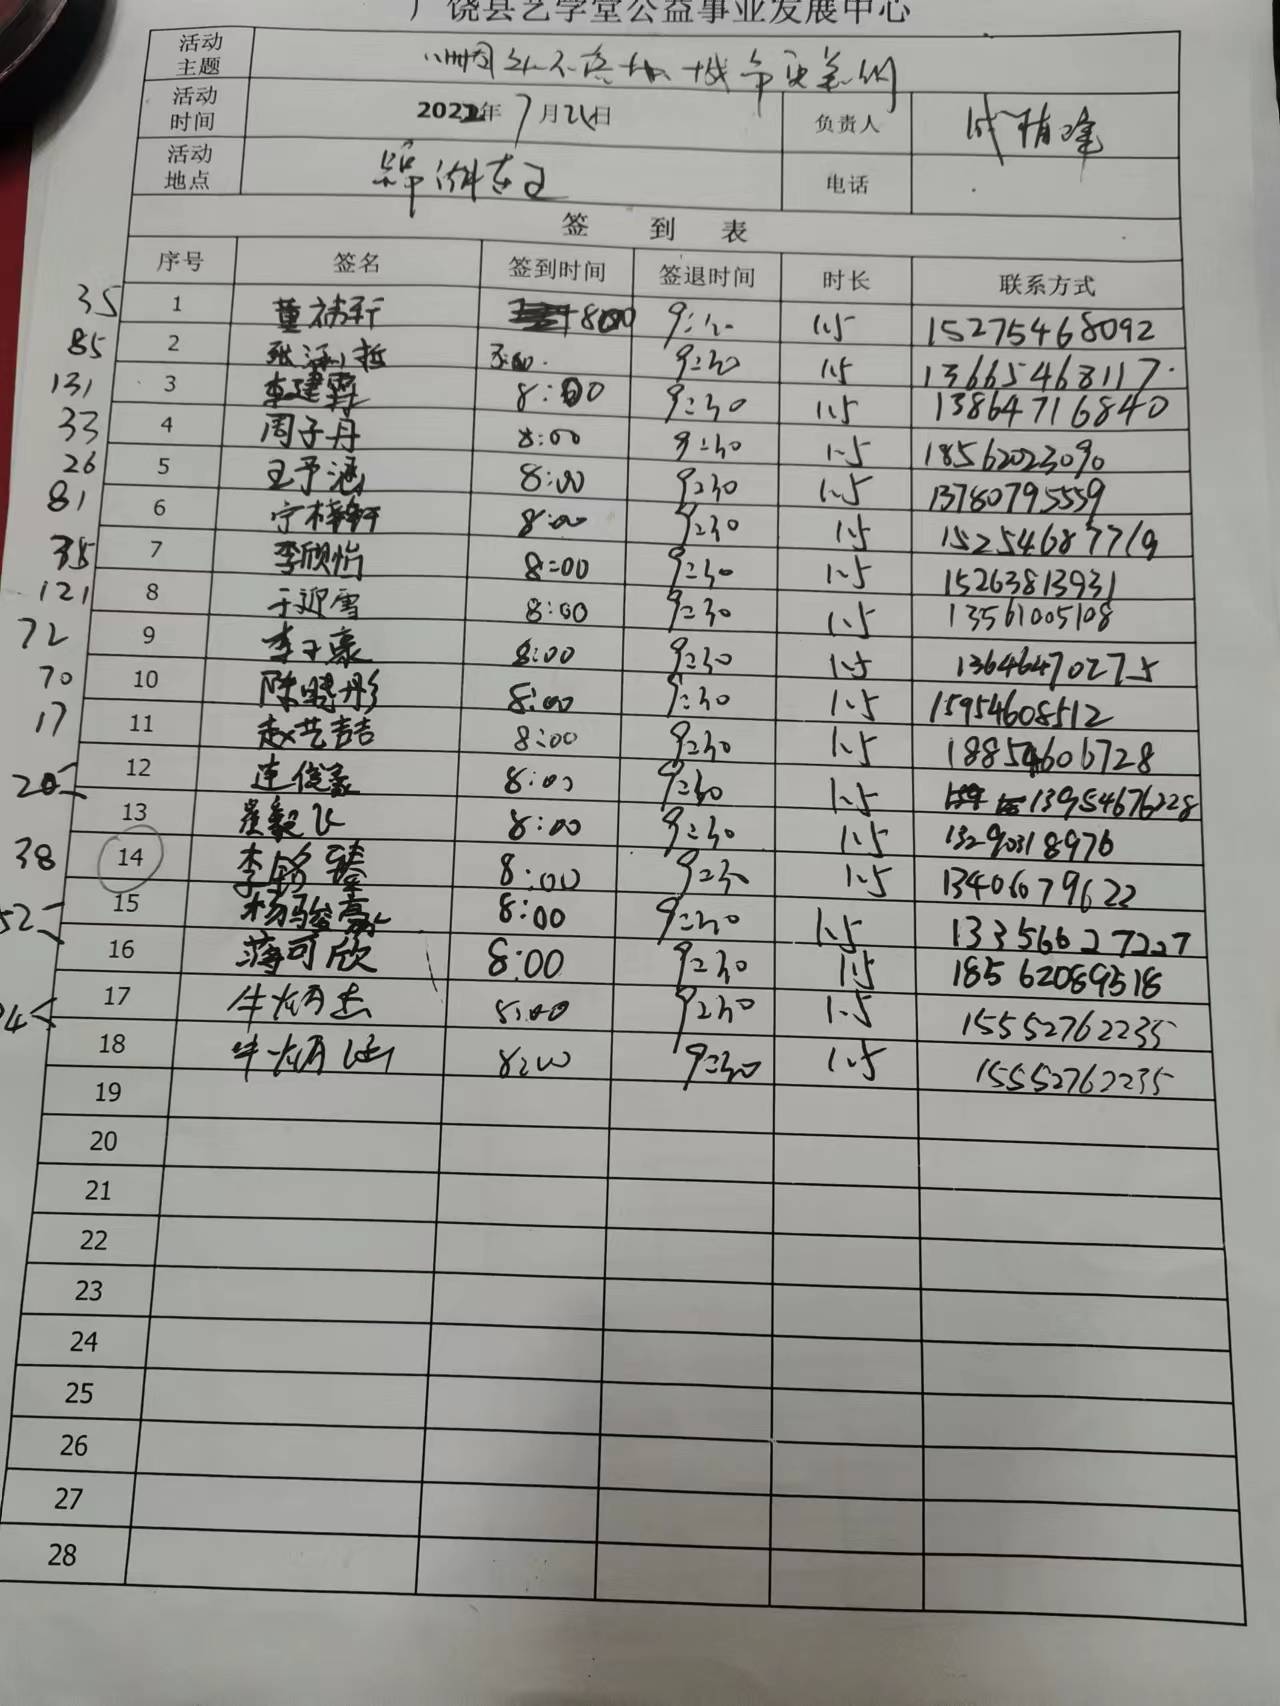 广饶县艺学堂公益事业发展中心
活动主题
活动时间 2022年7月 日 负责人
活动地点 电话
签到表
序号 签名 签到时间 签退时间 时长 联系方式
35 1 8:00 1.5 15275468092
85 2 9:30 1.5 13665468117
131 3 李建霖 8:00 9:30 1.5 13864716840
33 4 周子丹 8:00 9:30 1.5 18562023090
26 5 王予涵 8:00 9:30 1.5 13780795559
81 6 宁梓轩 8:00 9:30 1.5 15254687719
7 李欣怡 8:00 9:30 1.5 15263813931
121 8 于迎雪 8:00 9:30 1.5 13561005108
72 9 李子豪 8:00 9:30 1.5 13646470275
70 10 陈晓彤 8:00 9:30 1.5 15954608512
17 11 赵艺喆 8:00 9:30 1.5 18854606728
20 12 连俊豪 8:00 9:30 1.5 13954676228
13 崔毅飞 8:00 9:30 1.5 13290318976
38 14 李铭臻 8:00 9:30 1.5 13406079622
52 15 杨骏豪 8:00 9:30 1.5 13356627227
16 蒋可欣 8:00 9:30 1.5 18562089518
17 牛炳杰 8:00 9:30 1.5 15552762235
18 牛炳涵 8:00 9:30 1.5 15552762235
19
20
21
22
23
24
25
26
27
28